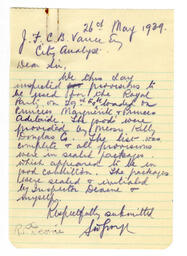 26th May 1939.
J. F. C. B. Vance Esq
City Analyst.
Dear Sir,
We this day
inspected provisions to
be used for the Royal
Party, on 29th
Princess Marguerite & Princess
Adelaide. The goods were
provided by Messrs Kelly
Douglas Co. The list was
complete & all provisions
were in sealed packages.
which appeared to be in
good condition. The packages
were sealed & initialed
by Inspector Devine &
myself.
Respectfully submitted